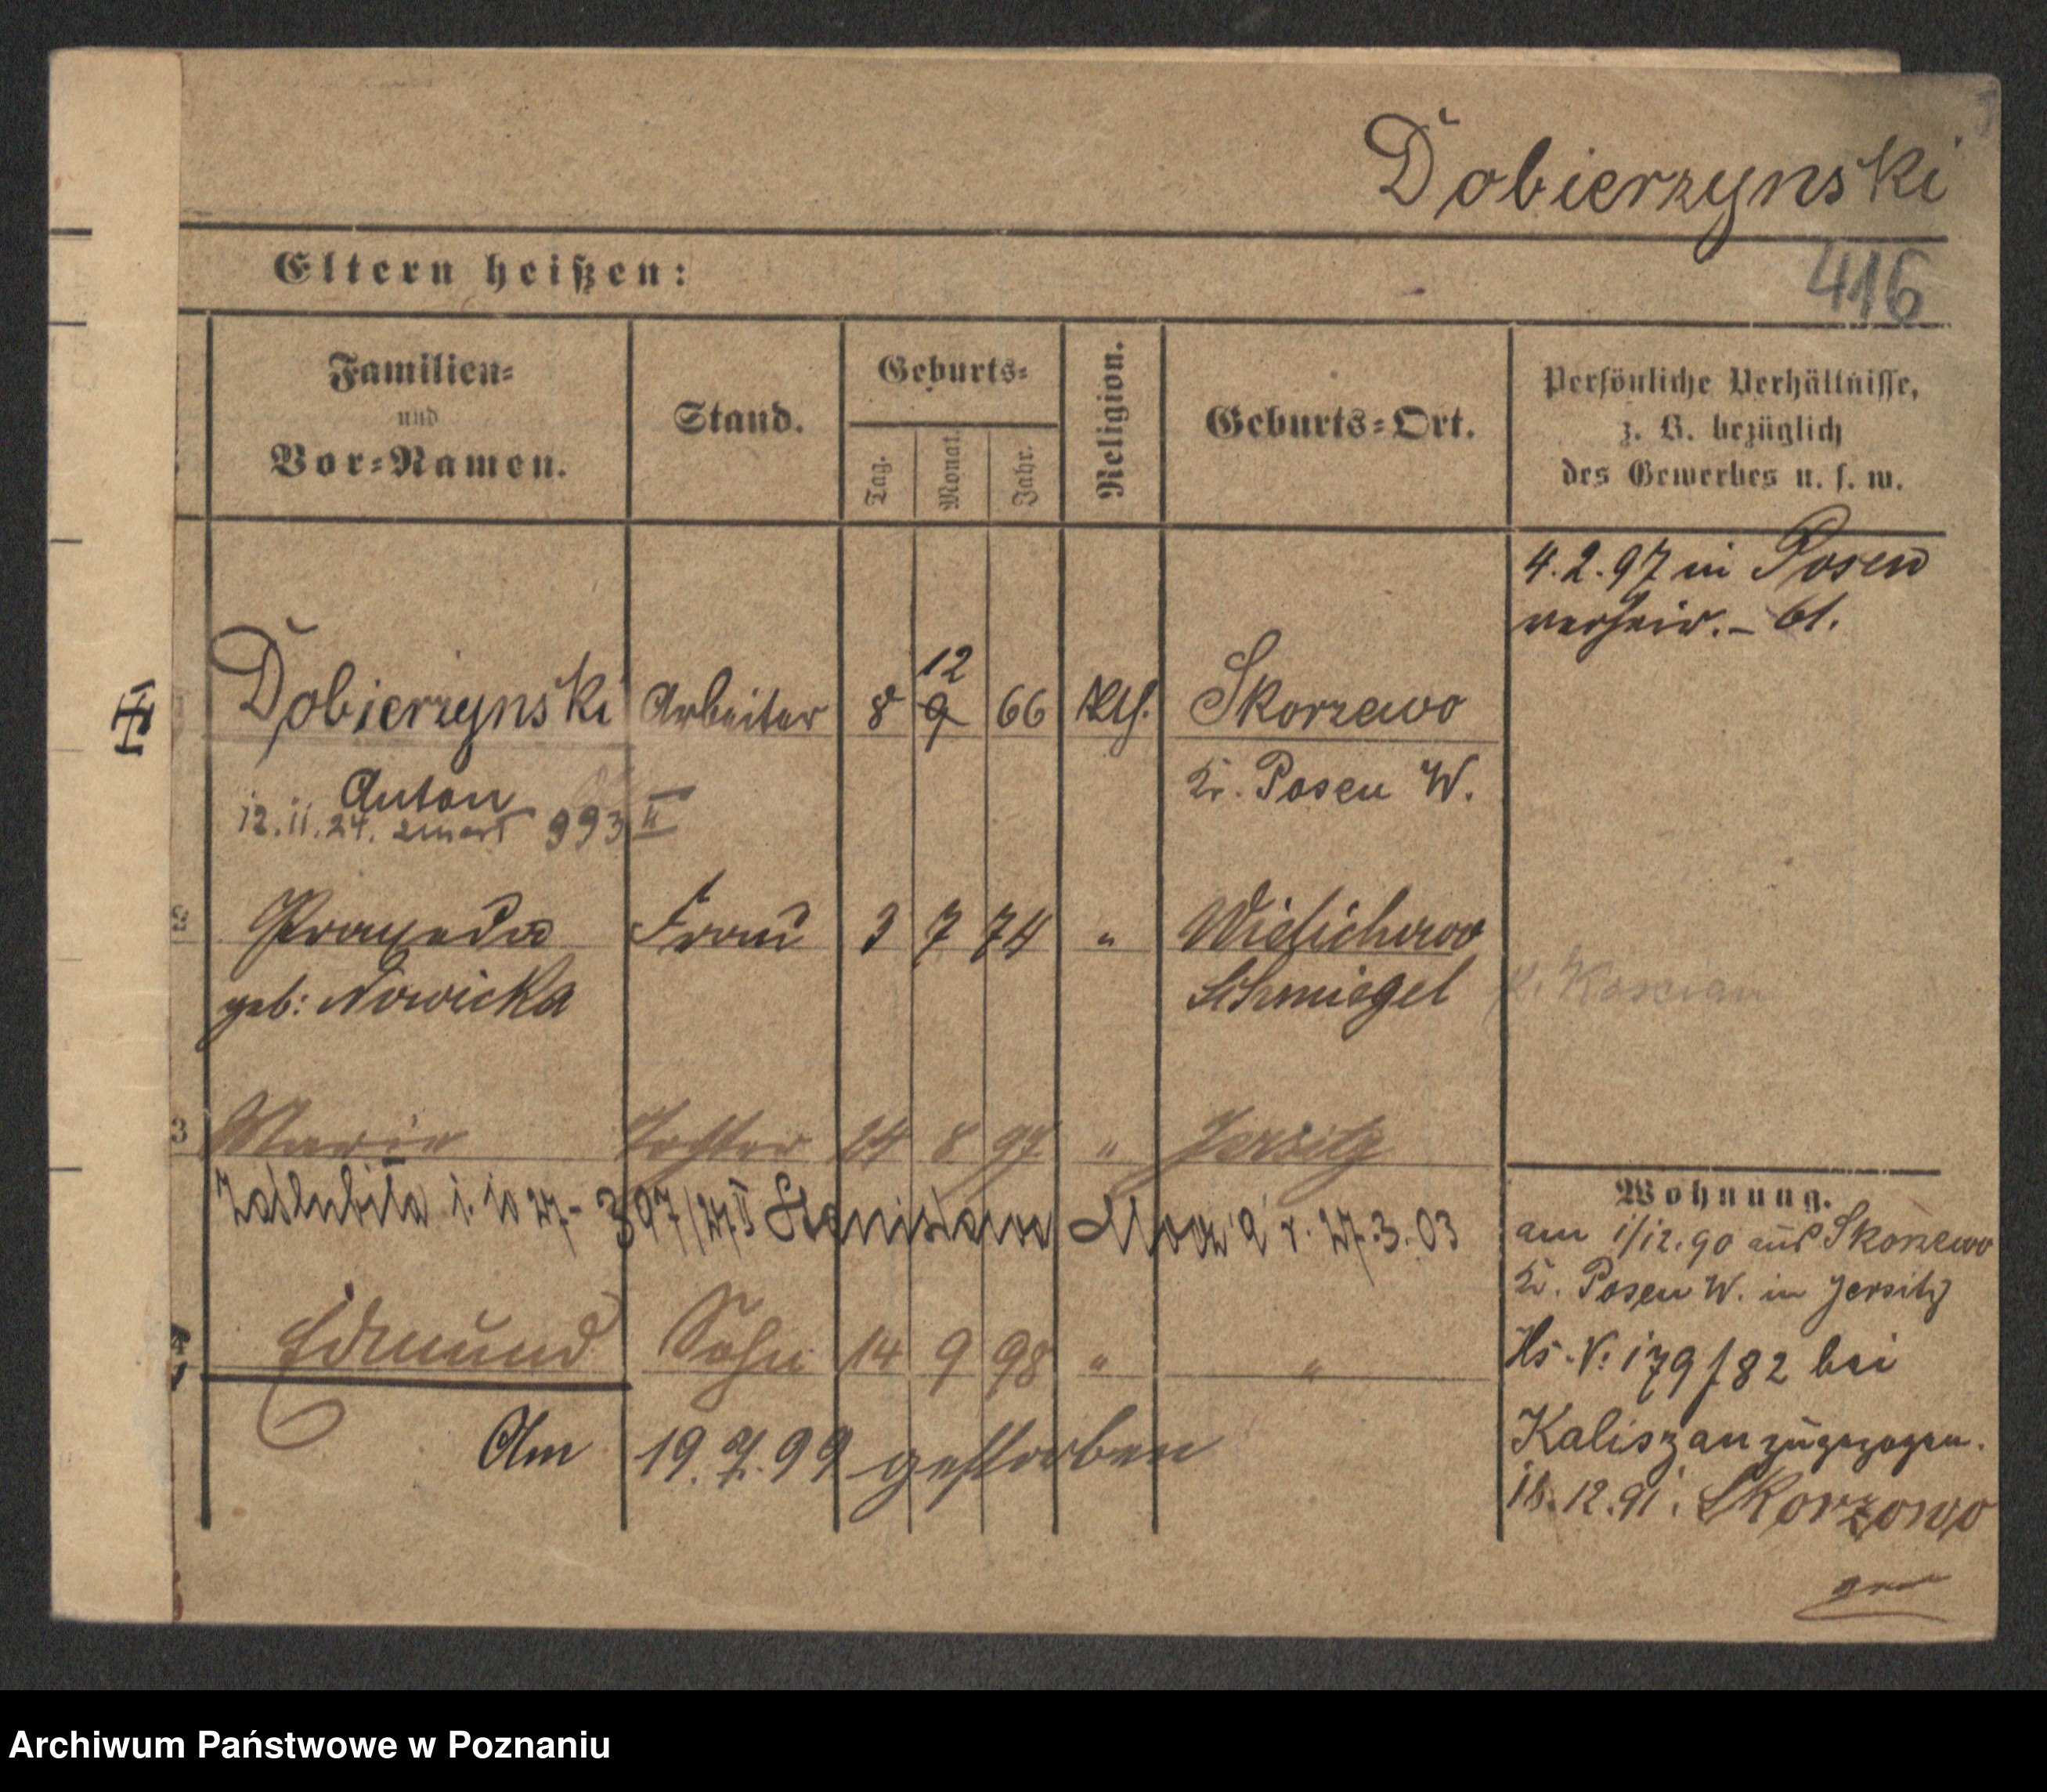 Dobierzynski
416
Eltern heißen:
Familien- und Vor-Namen.
Stand.
Geburts-
Tag.
Monat.
Jahr.
Religion.
Geburts-Ort.
Persönliche Verhältnisse,
z. B. bezüglich
des Gewerbes u. s. w.
4.2.97 in Posen
verheir. -
12
Dobierzynski Arbeiter 8 9 66 Kth. Skorzewo
Anton Kr. Posen W.
12.11.24. zmarł 993 II
2 Praxeda Frau 3 7 74 " Wielichowo
geb: Nowicka Schmiegel K. Koscian
3 Marie Tochter 24 8 97 " Jersitz
Zaślubiła 1.10 27- 397/27 II Stanisława 27.3.03
4 Edmund Sohn 14 9 98 " "
Am 19.7.99 gestorben
Wohnung.
am 1/12.90 aus Skorzewo
Kr. Posen W. in Jersitz
Hs. N: 179/82 bei
Kaliszan zugezogen.
18.12.91. Skorzewo
Archiwum Państwowe w Poznaniu